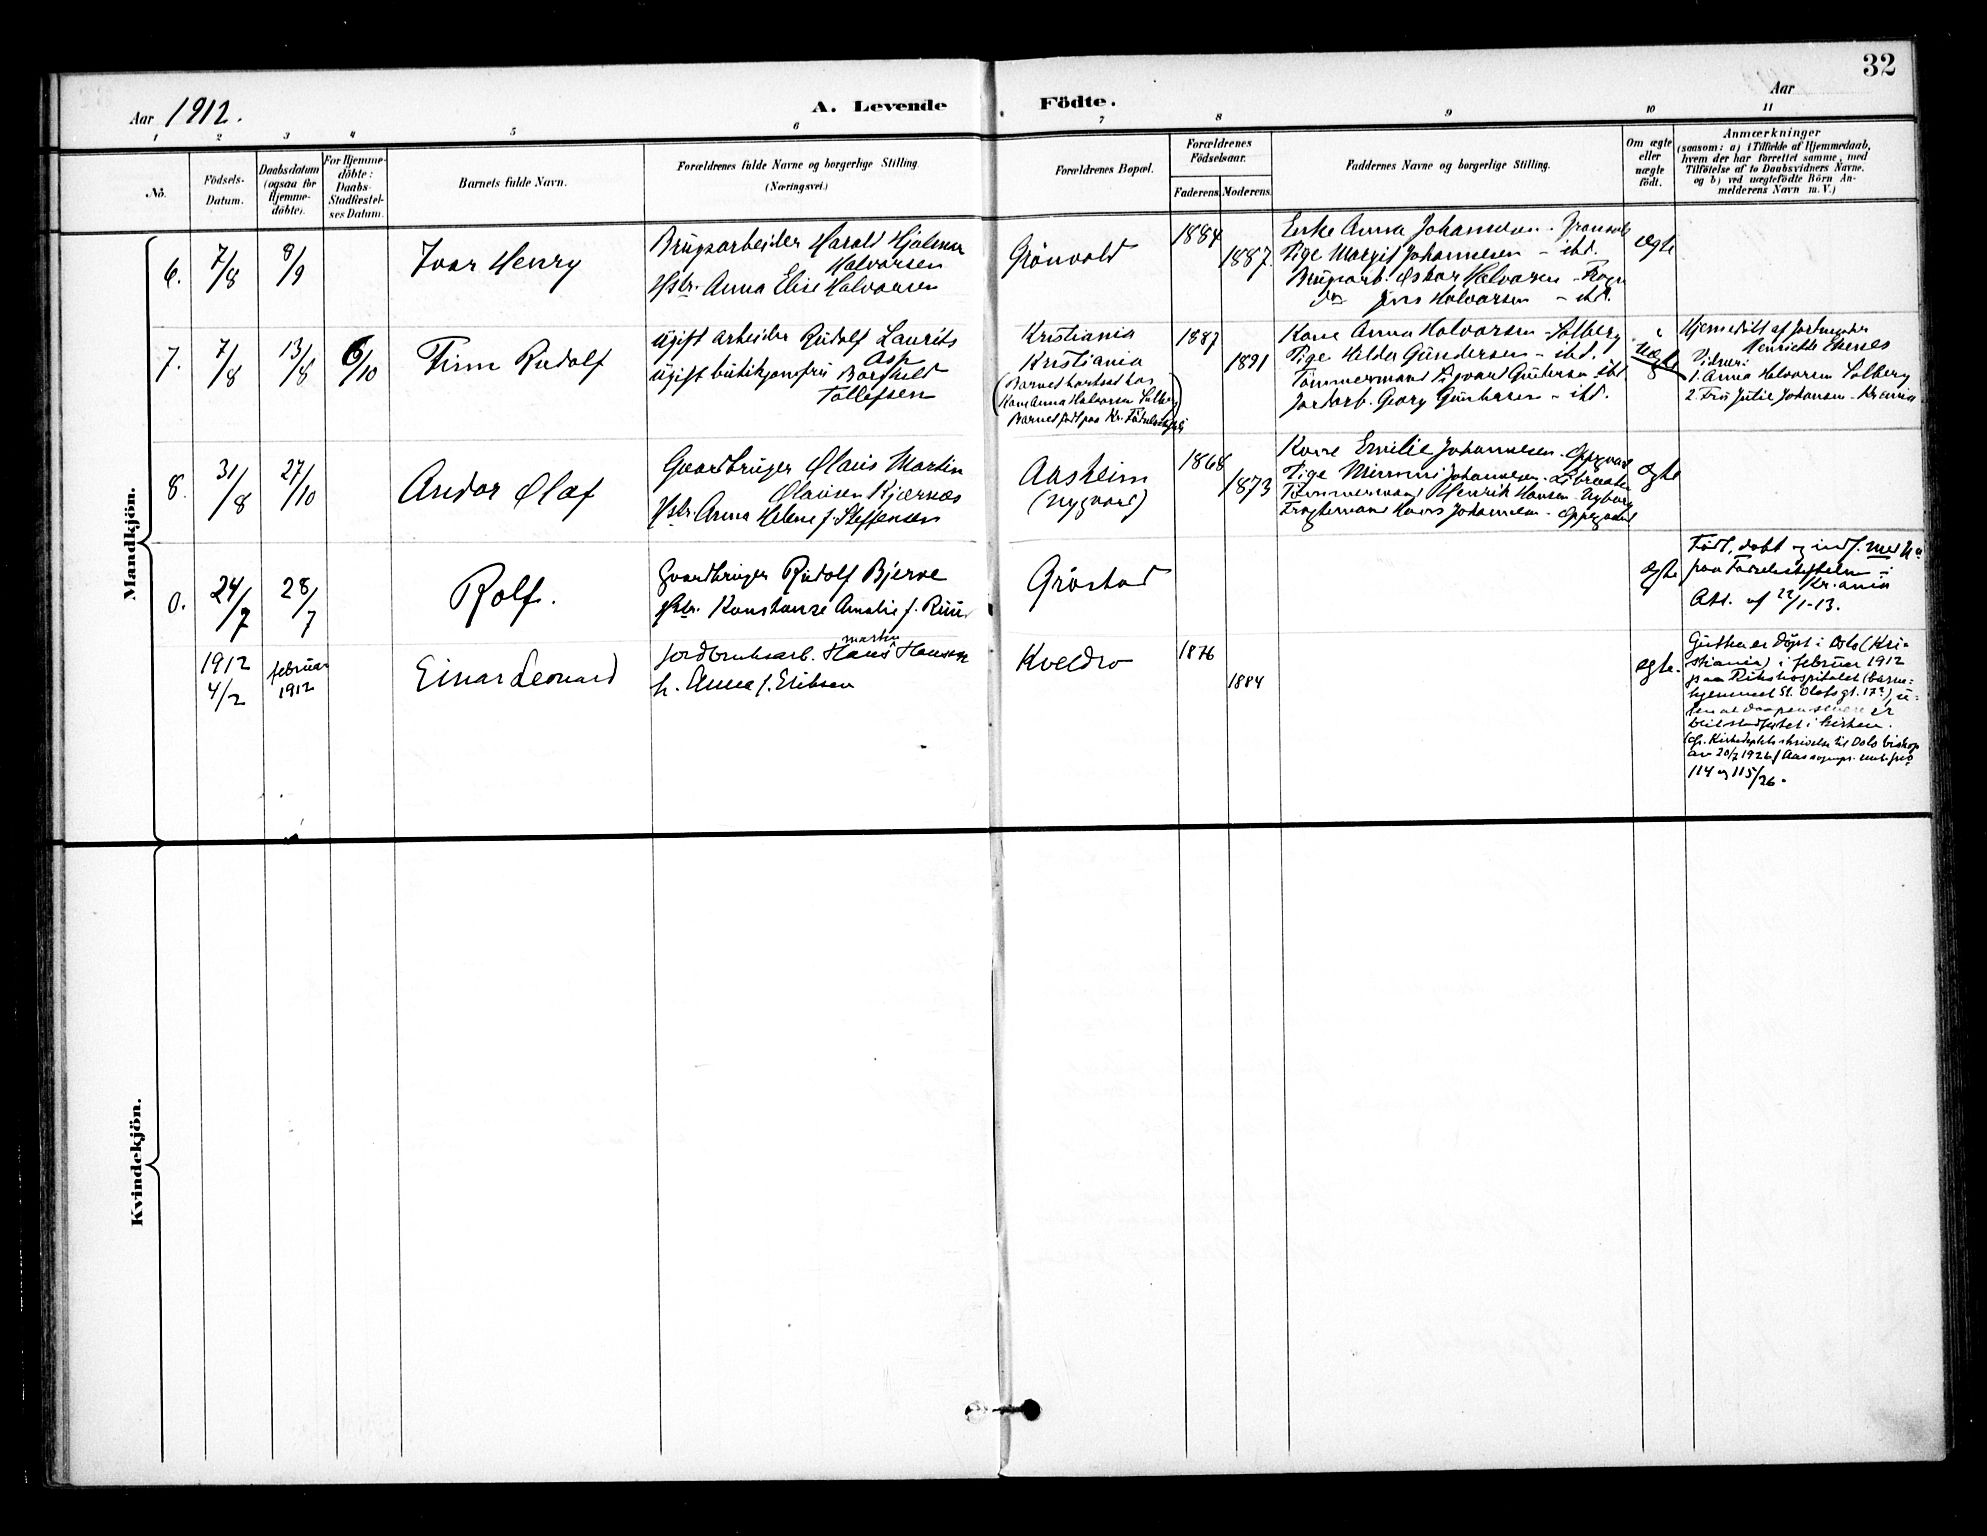 32
Aar 1912.
A. Levende Födte.
Aar
1 2 3 4 5 6 7 8 9 10 11
No.
Födsels-
Datum.
Daabsdatum
(ogsaa for
Hjemme-
döbte).
For Hjemme-
döbte:
Daabs-
Stadfæstel-
ses Datum.
Barnets fulde Navn.
Forældrenes fulde Navne og borgerlige Stilling.
(Næringsvei.)
Forældrenes Bopæl.
Forældrenes
Födselsaar.
Faderens. Moderens.
Faddernes Navne og borgerlige Stilling.
Om ægte
eller
uægte
födt.
Anmærkninger
(saasom: a) i Tilfælde af Hjemmedaab,
hvem der har forrettet samme, med
Tilföielse af to Daabsvidners Navne.
og b) ved uægtefödte Börn An-
melderens Navn m. V.)
Mandkjön.
6.
7/8
8/9
Ivar Henry
Brugsarbeider Harald Hjalmar
Halvorsen
Hstr. Anna Elise Halvorsen
Grönvold
1884
1887.
Enke Anna Johannesen -
Pige Margit Johannesen - ibd.
Brugsarb. Oskar Halvorsen -
Jens Halvorsen - ibd.
ægte
7.
7/8
13/8
6/10
Finn Rudolf
ugift arbeider Rudolf Laurits
Asp
ugift butikjomfru Borghild
Tollefsen
Kristiania
Kristiania
(Barnet bortsat hos
Kone Anna Halvorsen Solberg)
Barnet født paa Kr. Fødselsstiftelse
1887
1891
Kone Anna Halvorsen - Solberg
Pige Helda Gundersen - ibd.
Tömmermand Gundersen ibd.
Jordarb. Georg Gundersen - ibd.
uægte
Hjemmedöbt af Jordmoder
Henriette Ekenes
Vidner:
1. Anna Halvorsen Solberg
2. Fru Julie Johansen - Kr.ania
8.
31/8
27/10
Andor Olaf
Gaardbruger Olaus Martin
Olausen Kjærnes
Hstr. Anna Helene f. Steffensen
Aasheim
(Nygaard)
1868
1873
Kone Emilie Johannesen - Oppegaard
Pige Mimmi Johannesen -
Tömmermand Henrik Hansen - Nyborg
Hans Johannesen - Oppegaard
ægte
0.
24/7
28/7
Rolf.
Gaardbruger Rudolf Bjerve
Hstr. Konstanse Amalie f. Ruud
Gröstad
ægte
Født, døbt og indf. med No
paa Fødselsstiftelsen i
Kr.ania
Att. af 22/1-13.
1912
4/2
februar
1912
Einar Leonard
Jordbruksarb. Hans Martin Hansen
h. Anna f. Eriksen
Kveldro
1876
1884
ægte.
Gutten er døpt i Oslo (Kri-
stiania) i februar 1912
paa Rikshospitalet (barne-
hjemmet St. Olafs gt. 17?), u-
ten at daapen senere er
blit stadfestet i kirken.
(cfr. Kirkedeptets skrivelse til Oslo biskop
av 20/2 1926/ Aas sognepr. emb.
114 og 115/26.
Kvindekjön.